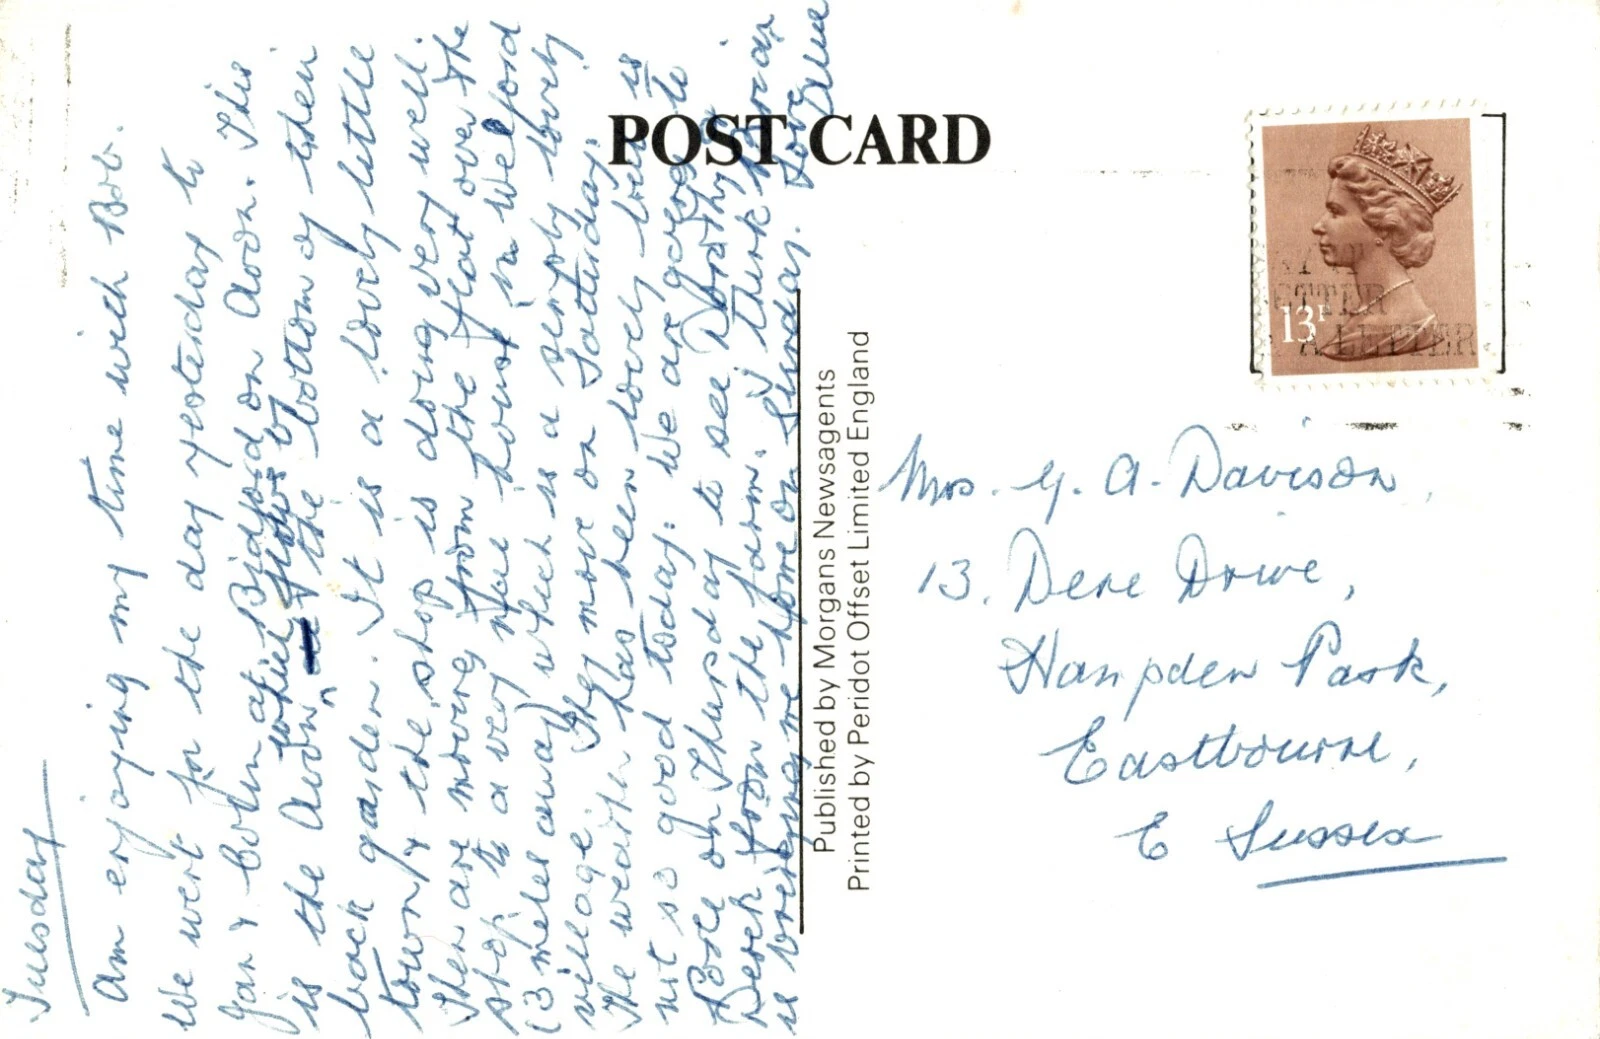 Tuesday
Am enjoying my time with Bob.
We went for the day yesterday to
Jan & Colin at Bidford on Avon. This
is the Avon which flows by the bottom of their
back garden. It is a lovely little
town & the shop is doing very well.
They are moving from the flat over the
shop to a very nice house in Welford
3 miles away which is a simply lovely
village. They move on Satturday.
The weather has been lovely but is
not so good today. We are going to
Poole on Thursday to see Dorothy &
Derek from the farm. I think
is bringing me home on Sunday. Love
POST CARD
Published by Morgans Newsagents
Printed by Peridot Offset Limited England
13P
A LETTER
Mrs. G. A. Davison,
13. Dene Drive,
Hampden Park,
Eastbourne,
E Sussex